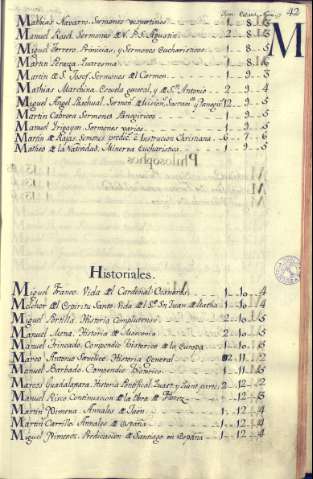 Tom. Estan. Cax. 42
Mathias Navarro. Sermones vespertinos 1 . 8 . 3
Manuel Risel. Sermones de N. P. S. Agustin 2 . 8 . 3
M
Miguel Ferrero. Primicias, y Sermones Eucharisticos 1 . 8 . 5
Martin Peraza. Quaresma 1 . 8 . 6
Martin de S. Josef. Sermones del Carmen 1 . 9 . 3
Mathias Marchina. Escuela general, y de Sn. Antonio 2 . 9 . 4
Miguel Angel Paschual. Sermon. de Mission, Quares. y Panegir. 12 . 9 . 4
Martin Cabrera. Sermones Panegiricos 1 . 9 . 5
Manuel Irigoyen. Sermones varios 1 . 9 . 5
Martin de Rajas. Sermones predic. e Instruccion Christiana 6 . 7 . 6
Matheo de la Natividad. Minerva Eucharistica 1 . 9 . 5
Historiales.
Miguel Franco. Vida del Cardenal Cisneros 1 . 10 . 4
Melchor del Espiritu Santo. Vida de Sn. Juan de Matha 1 . 10 . 4
Miguel Portilla. Historia Complutense 2 . 10 . 5
Manuel Mena. Historia de Marconia 2 . 10 . 5
Manuel Trincado. Compendio historico de la Europa 1 . 10 . 8
Marco Antonio Savelico. Historia General 2 . 11 . 2
Manuel Barbado. Compendio Historico 1 . 11 . 6
Marcos Guadalaxara. Historia Pontifical Quart. y Quint. parte 2 . 12 . 2
Manuel Risco. Continuacion de la Obra de Florez 12 . 3
Martin Ximena. Annales de Jaen 1 . 12 . 4
Martin Carrillo. Annales de España 1 . 12 . 4
Miguel Ximenez. Predicacion de Santiago en España 1 . 12 . 4